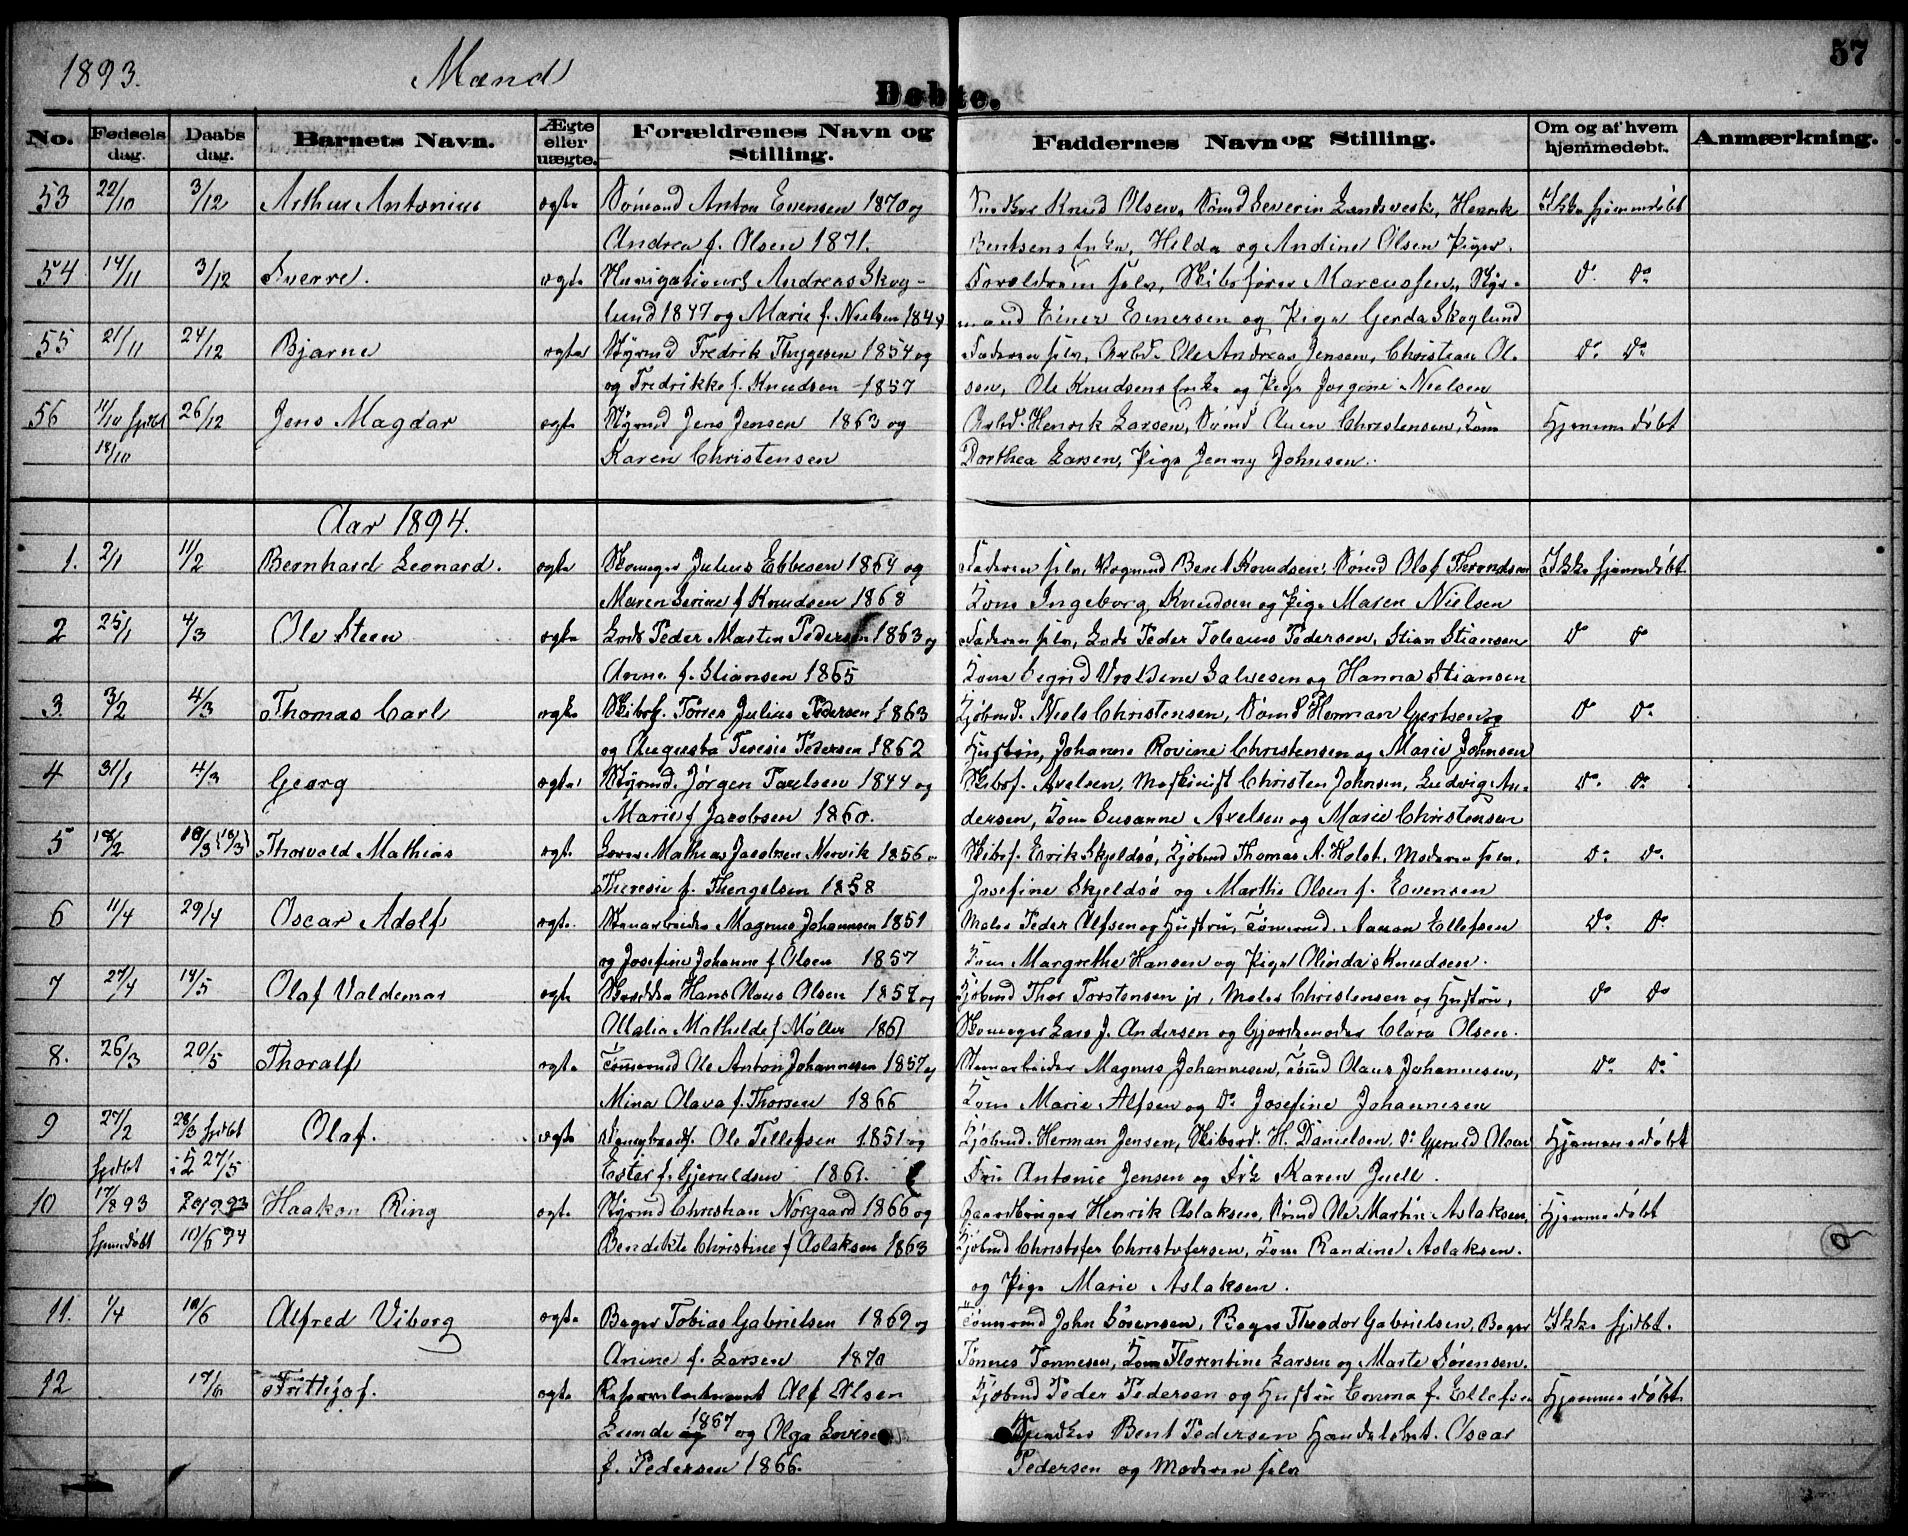 1893. Mænd 57
Døbte.
No. Fødsels dag. Daabs dag. Barnets Navn. Ægte eller uægte. Forældrenes Navn og Stilling. Faddernes Navn og Stilling. Om og af hvem hjemmedøbt. Anmærkning.
53 22/10 3/12 Arthur Antonius ægte Sømand Anton Evensen 1870 og Snedker Knud Olsen, Sømd Severin Landsverk, Henrik Ikke hjemmedøbt
Andrea f. Olsen 1871. Bentsens Enke, Helda og Andine Olsen Piger.
54 14/11 3/12 Sverre. ægte Navigationsl. Andreas Skog- Forældrene selv, Skibsfører Marcussen, Styr- do do
lund 1847 og Marie f. Nielsen 184 mand Einer Evnersen og Pige Gerda Skoglund
55 21/11 24/12 Bjarne ægte Styrmd Fredrik Thygesen 1854 og Faderen selv, Arbd. Ole Andreas Jensen, Christian Ol- do do
og Fredrikke f. Knudsen 1857 sen, Ole Knudsens Enke og Pige Jorgine Nielsen
56 11/10 hjdbt 26/12 Jens Magdar ægte Styrmd Jens Jensen 1863 og Arbd. Henrik Larsen, Sømd Auen Christensen, Kone Hjemmedøbt
18/10 Karen Christensen Dorthea Larsen, Pige Jenny Johnsen.
Aar 1894.
1. 2/1 11/2 Bernhard Leonard. ægte Skomager Julius Ebbesen 1864 og Faderen selv, Vognmd Bent Knudsen, Sømd Olaf Therondsen Ikke hjemmedøbt
Maren Serine f Knudsen 1868 Kone Ingeborg Knudsen og Pige Maren Nielsen
2 25/1 4/3 Ole Steen ægte Lods Peder Martin Pedersen 1863 og Faderen selv, Lods Peder Toleaus Pedersen, Stian Stiansen do do
Anne f. Stiansen 1865 Kone Segrid Vraldine Halvesen og Hanna Stiansen
3. 3/2 4/3 Thomas Carl ægte Skibsf. Torres Julius Pedersen f 1863 Kjøbmd. Niels Christensen, Sømd Herman Gjertsen og do do
og Augusta Teresie Pedersen 1862 Hustru, Johanne Rovine Christensen og Marie Johnsen
4 31/1 4/3 Georg ægte Styrmd. Jörgen Paulsen 1844 og Skibsf. Axelsen, Maskinist Christen Johnsen, Ludvig An- do do
Marie f Jacobsen 1860. dersen, Kone Susanne Axelsen og Marie Christensen
5 18/2 18/3 (18/3) Thorvald Mathias ægte Mathias Jacobsen Nervik 1856 Skibsf. Erik Skjeldsö, Kjøbmd Thomas A. Holst, Moderen selv, do do
Theresie f. Thengelsen 1858 Josefine Skjeldsø og Marthe Olsen f. Evensen
6 11/4 29/4 Oscar Adolf ægte Stenarbeider Magnus Johannesen 1851 Maler Peder Alfsen og Hustru, Tømermd. Nanan Ellefsen do do
og Josefine Johanne f Olsen 1857 Kone Margrethe Hansen og Pige Olinda Knudsen.
7 27/4 14/5 Olaf Valdemar ægte Hans Olaus Olsen 1857 og Kjøbmd Thor Torstensen jr, Maler Christensen og Hustru, do do
Malia Mathilde f Møller 1861 Skomager Lars J. Andersen og Gjordemoder Clara Olsen.
8. 26/3 20/5 Thoralf ægte Tømermd Ole Anton Johannesen 1857 og Stenarbeider Magnus Johannesen, Sømd Olaus Johannesen, do do
Mina Olava f. Thorsen 1866 Kone Marie Alfsen og do Josefine Johannesen
9 27/2 28/3 hjdbt Olaf. ægte Ole Tellefsen 1851 og Kjøbmd. Herman Jensen, Skibsrd. H. Danielsen, do Gjeruld Olsen Hjemmedøbt
hjdbt i K 27/5 Ester f. Gjeruldsen 1861. Fru Antonie Jensen og Frk Karen Juell.
10 17/8 93 20/9 93 Haakon Ring ægte Styrmd Christian Nörgaard 1866 og Gaardbruger Henrik Aslaksen, Sømd Ole Martin Aslaksen, Hjemmedøbt
hjemdøbt 10/6 94 Bendikte Christine f Aslaksen 1863 Kjøbmd Christofer Christofersen, Kone Randine Aslaksen.
og Pige Marie Aslaksen.
11. 1/4 10/6 Alfred Viborg ægte Bager Tobias Gabrielsen 1869 og Tømermd John Sörensen, Bager Theodor Gabrielsen, Bager Ikke hjdbt.
Anine f. Larsen 1870 Tönnes Tonnesen, Kone Florentine Larsen og Marte Sörensen.
12 17/6 Frithjof. ægte Alf Olsen Kjøbmd Peder Pedersen og Hustru Emma f. Ellefsen Hjemmedøbt
Lunde 1867 og Olga Lovise Snedker Bent Pedersen Handelsbet. Oscar
f. Pedersen 1866. Pedersen og Moderen selv